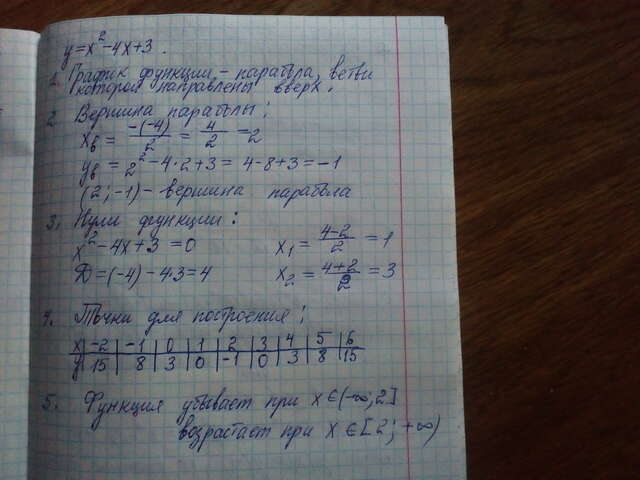 y=x²-4x+3.
1. График функции - парабола, ветви
которой направлены вверх.
2. Вершина параболы:
xв = -(-4)/2 = 4/2 = 2
yв = 2²-4·2+3 = 4-8+3 = -1
(2; -1) - вершина парабола
3. Нули функции:
x²-4x+3=0 x₁ = 4-2/2 = 1
D=(-4)-4·3=4 x₂ = 4+2/2 = 3
4. Точки для построения:
x -2 -1 0 1 2 3 4 5 6
y 15 8 3 0 -1 0 3 8 15
5. Функция убывает при x∈(-∞;2]
возрастает при x∈[2; +∞)